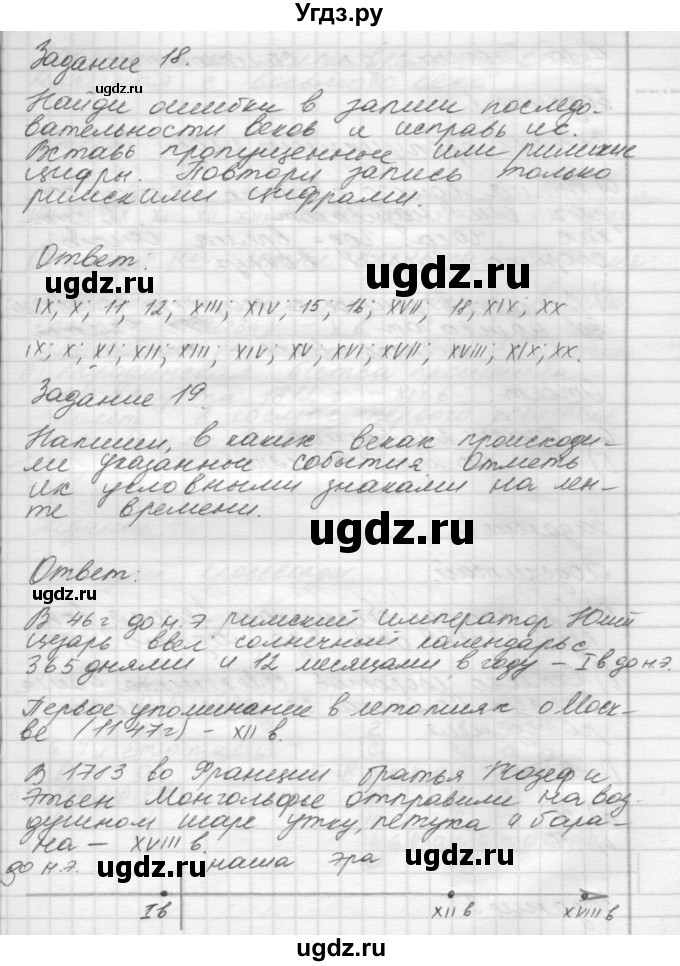 Угдз.ру
Задание 18.
ugdz.ru
Найди ошибки в записи последо-
вательности веков и исправь их.
Вставь пропущенные или римские
цифры. Повтори запись только
римскими цифрами.
ugdz.ru
Ответ:
ugdz.ru
ugdz.ru
IX; X; 11; 12; XIII; XIV; 15; 16; XVII; 18, XIX; XX
IX; X; XI; XII; XIII; XIV; XV; XVI; XVII; XVIII; XIX; XX.
Задание 19.
ugdz.ru
Напиши, в каких веках происходи-
ли указанные события. Отметь
их условными знаками на лен-
те времени.
ugdz.ru
Ответ:
ugdz.ru
В 46 г до н.э. римский император Юлий
Цезарь ввел солнечный календарь с
365 днями и 12 месяцами в году – I в до н.э.
Первое упоминание в летописях о Моск-
ве (1147г) – XII в.
ugdz.ru
В 1783 во Франции братья Жозеф и
Этьен Монгольфье отправили на воз-
душном шаре утку, петуха и бара-
на – XVIII в.
ugdz.ru
ugdz.ru
до н.э. наша эра
Iв XII в XVIII в
ugdz.ru